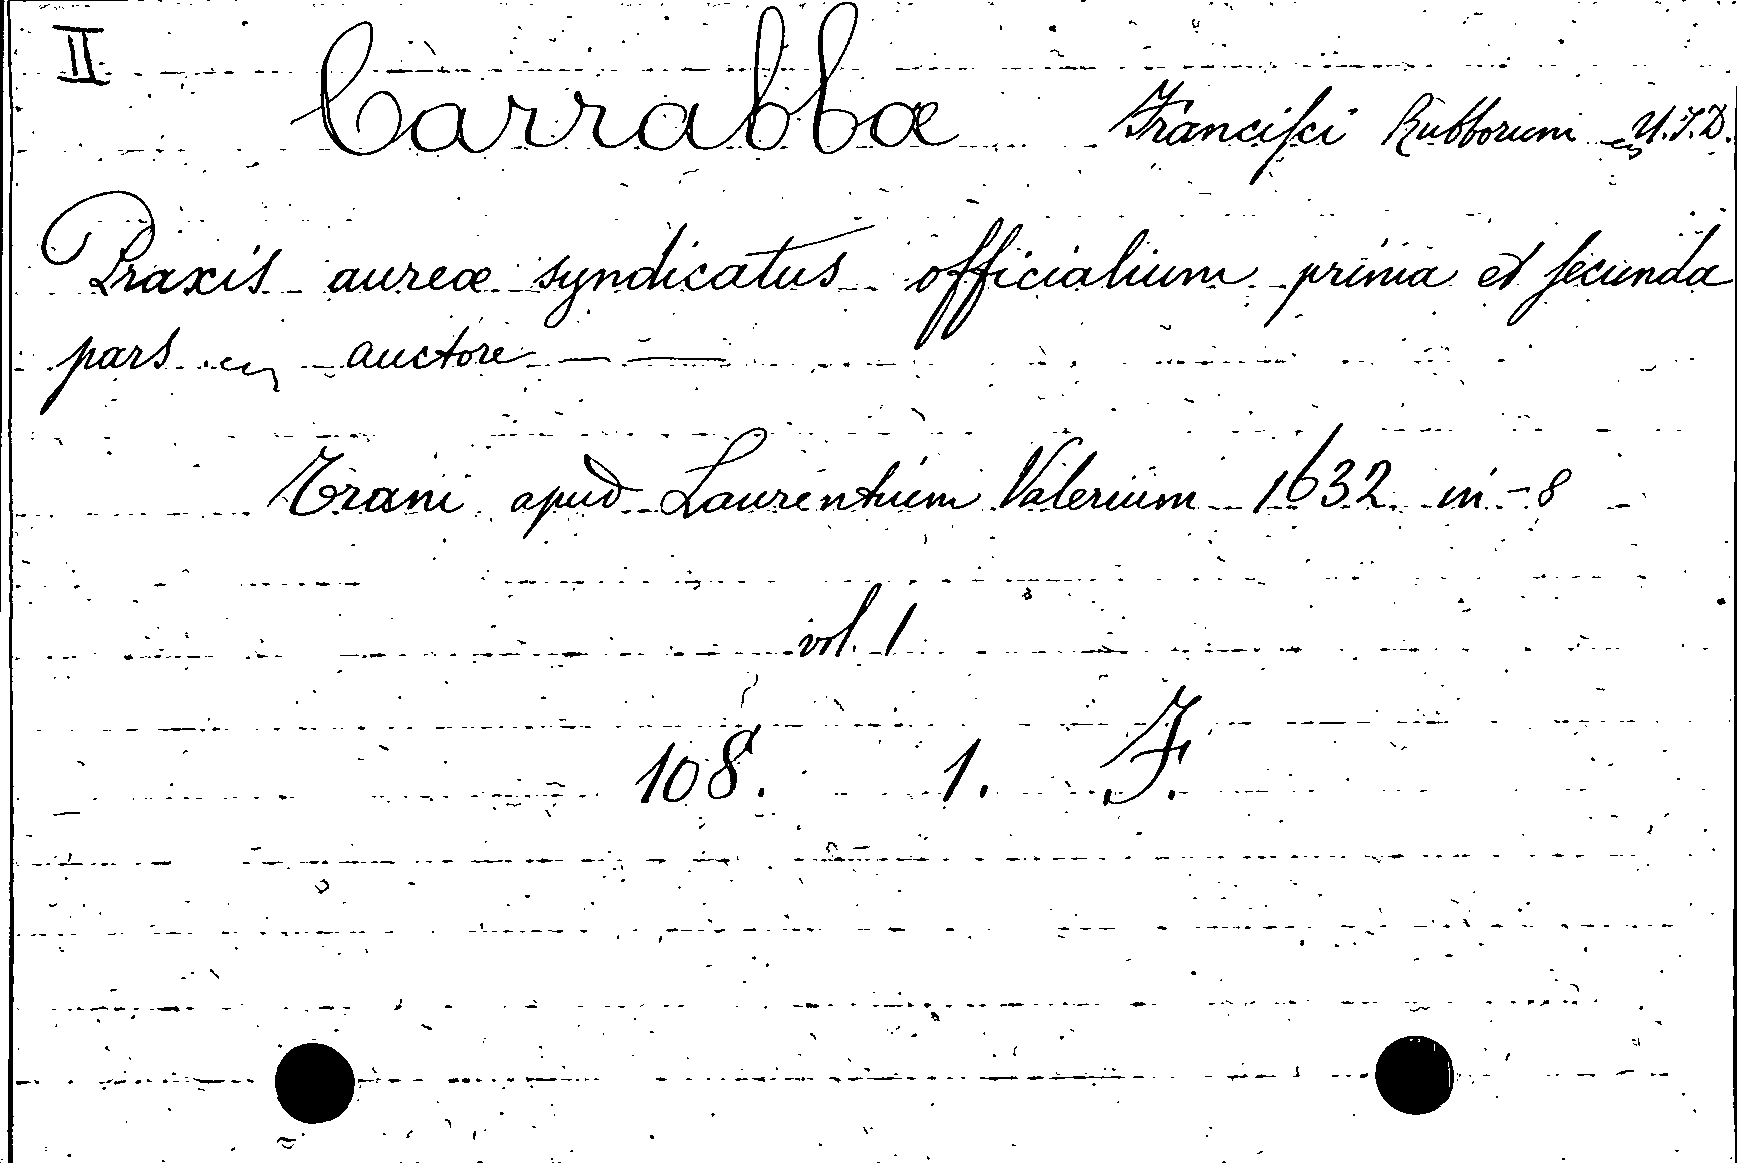 II Carrabbæ Franciſci Rubborum U.J.D.
Praxis aureæ syndicatus officialium prima et ſecunda
pars auctore — —
Trani apud Laurentium Valerium 1632 in-8
vol. 1
108. 1. F.